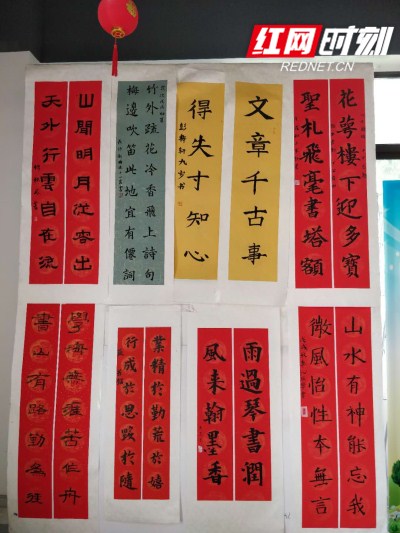 红网时刻
REDNET.CN
花萼樓下迎多寶
聖札飛毫書塔額
文章千古事
得失寸知心
竹外疏花冷香飛上詩句
梅邊吹笛此地宜有僊詞
山間明月從容出
天外行雲自在流
山水有神能忘我
微風怡性本無言
雨過琴書潤
風来翰墨香
業精於勤荒於嬉
行成於思毀於隨
學海無涯苦作舟
書山有路勤為徑